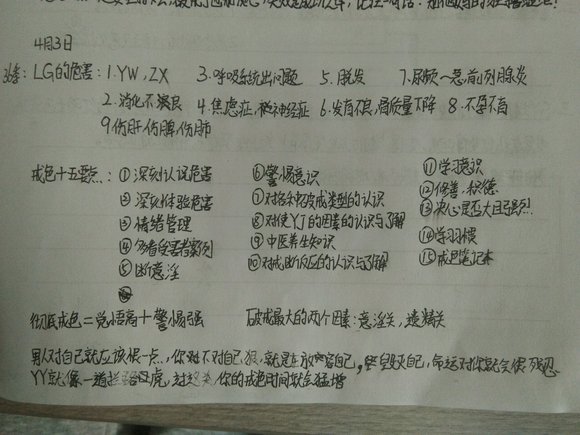 4月3日
36季: LG的危害: 1.YW,ZX 3.呼吸系统出问题 5.脱发 7.尿频尿急前列腺炎
2.消化不良 4.焦虑症,神经症 6.发育不良,骨质量下降 8.不孕不育
9伤肝伤脾伤肺
戒色十五要点: ①深刻认识危害 ⑥警惕意识 ⑪学习意识
②深刻体验危害 ⑦对各种破戒类型的认识 ⑫修善、积德
③情绪管理 ⑧对使YJ的因素的认识与了解 ⑬决心是否大且强烈
④多看受害者案列 ⑨中医养生知识 ⑭学习惯
⑤断意淫 ⑩对戒断反应的认识与了解 ⑮戒色笔记本
彻底戒色=觉悟高+警惕强 破戒最大的两个因素:意淫关,遗精关
男人对自己就应该狠一点,你对不对自己狠,就是在放纵自己,毁灭自己,命运对你就会很残忍
YY就像一道拦路虎,你的戒色时间就会猛增